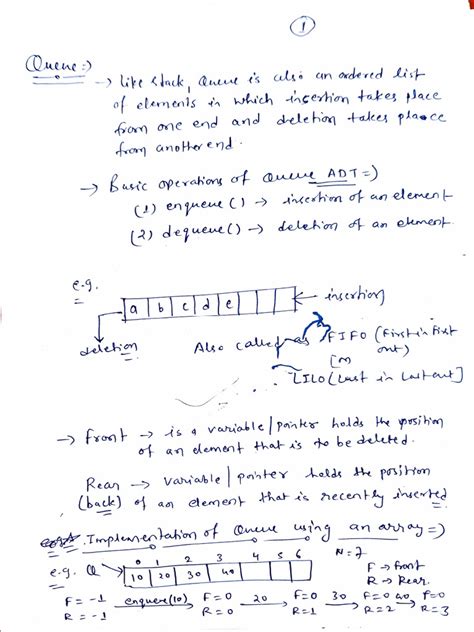 1
Queue :)
→ Like stack, Queue is also an ordered list
of elements in which insertion takes place
from one end and deletion takes place
from another end.
→ Basic operations of Queue ADT =)
(1) enqueue () → insertion of an element
(2) dequeue () → deletion of an element.
e.g.
a b c d e ← insertion
deletion
Also called as FIFO (First in First
out)
LILO (Last in Last out]
→ Front → is a variable/pointer holds the position
of an element that is to be deleted.
Rear → variable/pointer holds the position
(back) of an element that is recently inserted
Implementation of Queue using an array =)
0 1 2 3 4 5 6
N=7
e.g. Q → 10 20 30 40
F → front
R → Rear.
F = -1 enqueue(10) F=0 20 F=0 30 F=0 40 F=0
R = -1 R = 0 R=1 R=2 R=3